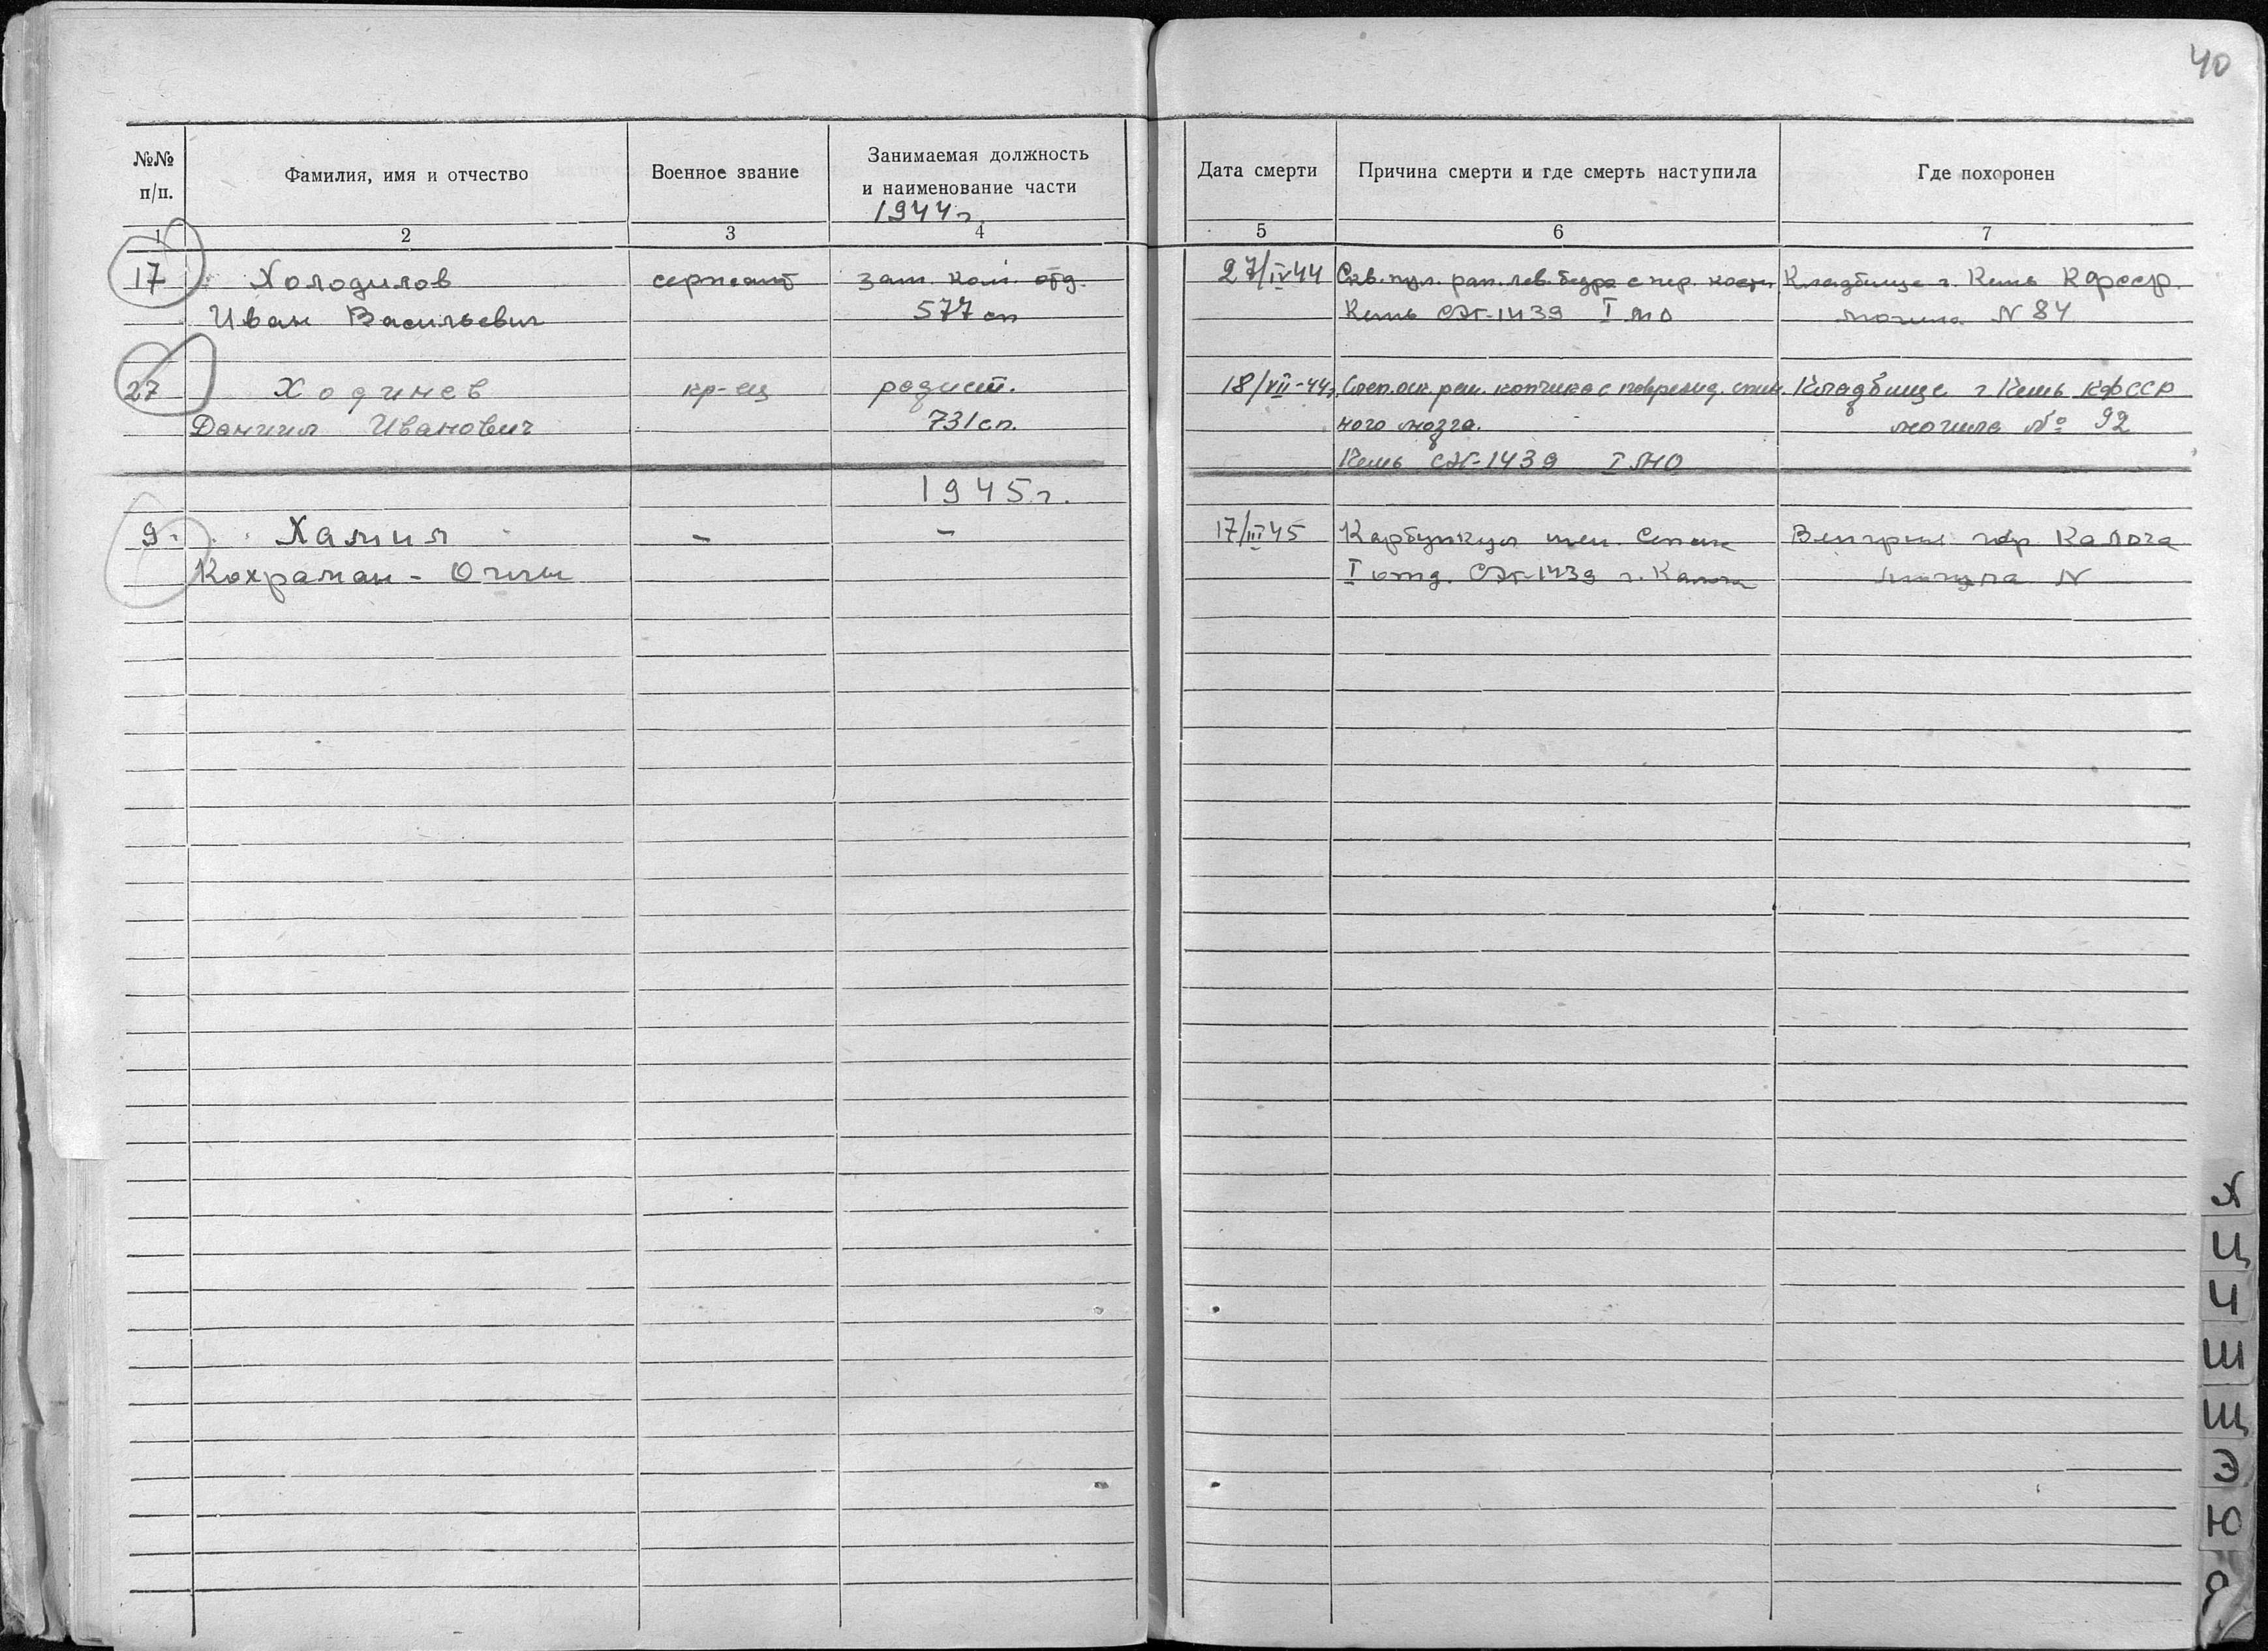 40
№№ п/п.
Фамилия, имя и отчество
Военное звание
Занимаемая должность
и наименование части
1944г.
Дата смерти
Причина смерти и где смерть наступила
Где похоронен
1 2 3 4 5 6 7
17 Холодилов сержант зам. ком. отд. 27/IV 44 Скв. пул. ран. лев. бедра с пер. кости Кладбище г. Кемь КФССР.
Иван Васильевич 577 сп Кемь СЭГ-1439 I МО могила N 84
27 Ходинев кр-ец радист. 18/VII-44г. Слеп. оск. ран. копчика с поврежд. спин. Кладбище г Кемь КФССР
Даниил Иванович 731 сп. ного мозга. могила № 92
Кемь СЭГ-1439 I МО
1945г.
9. Халил - - 17/III 45 Карбункул шеи. Сепсис Венгрия гор Калоча
Кахраман-Оглы I отд. СЭГ-1439 г. Калоча могила N
Х
Ц
Ч
Ш
Щ
Э
Ю
Я